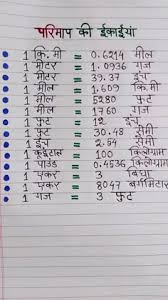 परिमाप की ईकाईयां
1 कि.मी = 0.6214 मील
1 मीटर = 1.0936 गज
1 मीटर = 39.37 इंच
1 मील = 1.609 कि.मी
1 मील = 5280 फुट
1 मील = 1760 गज
1 फुट = 12 इंच
1 फुट = 30.48 सेमी
1 इंच = 2.54 सेमी
1 कुइंटल = 100 किलोग्राम
1 पाउंड = 0.4536 किलोग्राम
1 एकर = 3 बिघा
1 एकर = 8047 वर्गमिटर
1 गज = 3 फुट